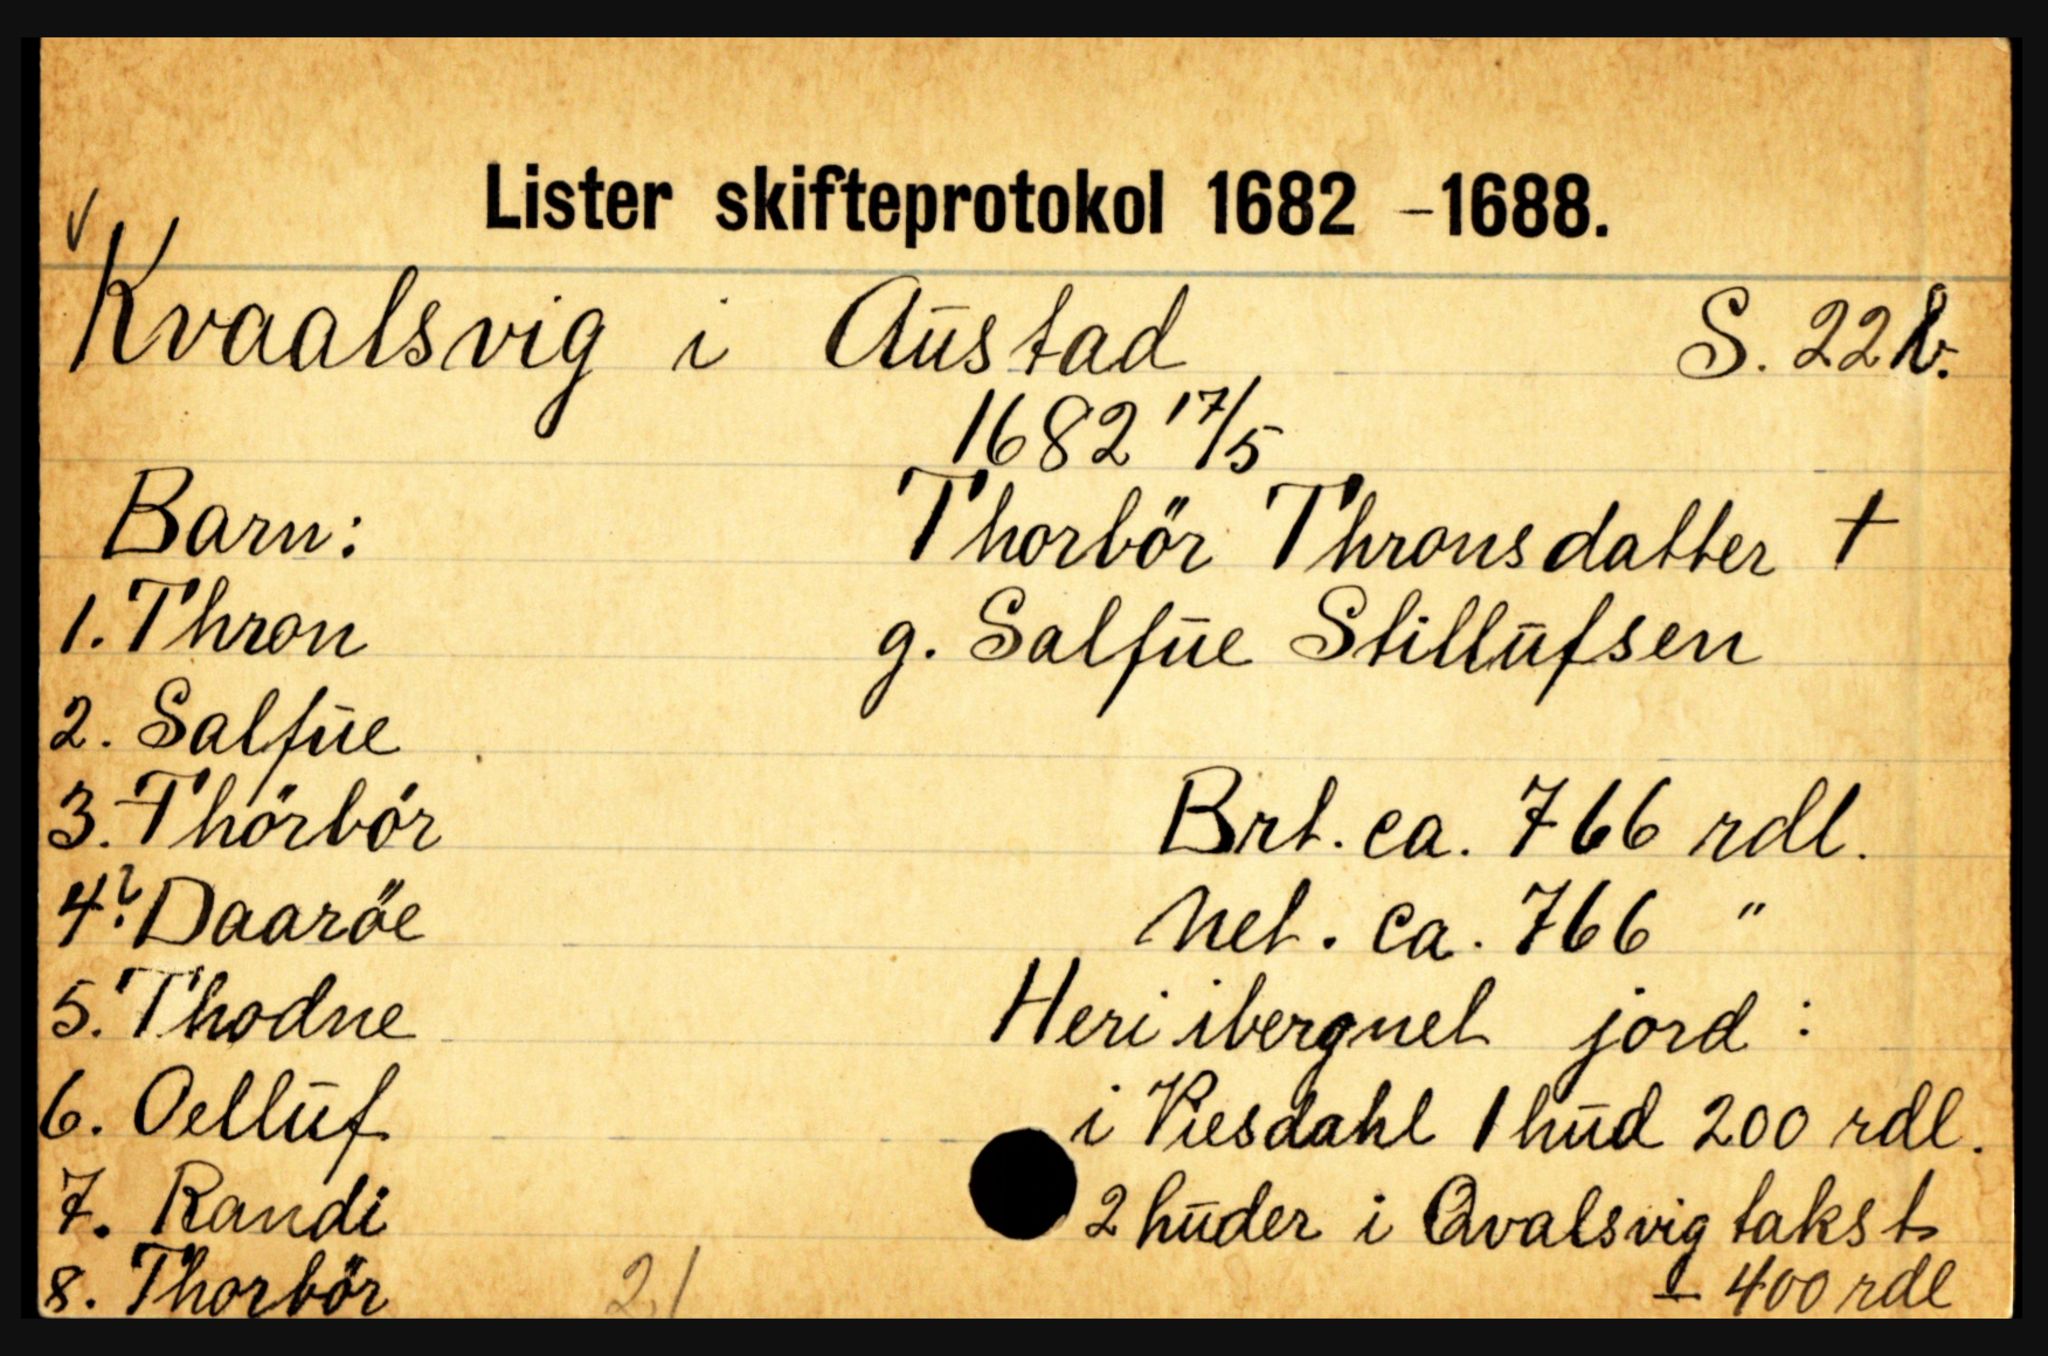 Lister skifteprotokol 1682 - 1688.
Kvaalsvig i Aūstad S. 22 b.
1682 17/5
Barn: Thorbör Thronsdatter †
1. Thron g. Salfūe Stillūfsen
2. Salfūe
3. Thörbör Brt. ca. 766 rdl.
4.? Daaröe Net. ca. 766 "
5. Thodne Heri ibergnet jord :
6. Oellūf i Viesdahl 1 hūd 200 rdl.
7. Randi 2 hūder i Qvalsvig takst
8. Thorbör 21 — 400 rdl